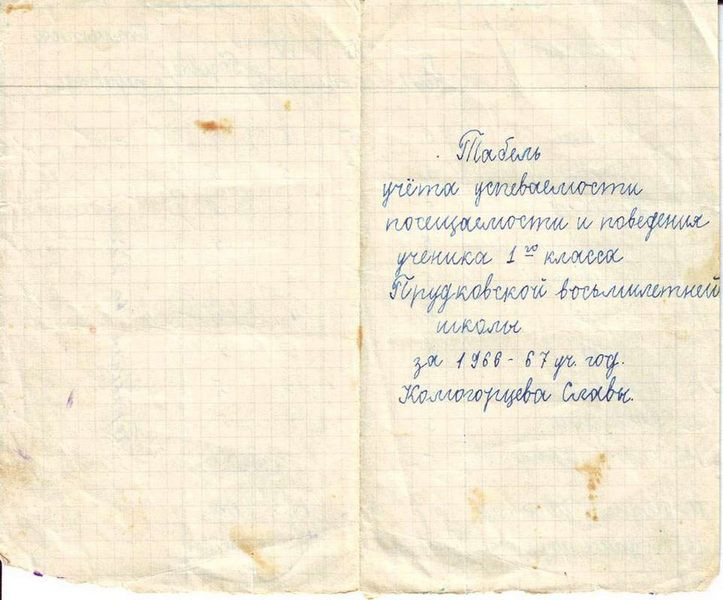 Табель
учёта успеваемости
посещаемости и поведения
ученика 1го класса
Прудковской восьмилетней
школы
за 1966-67 уч. год.
Комогорцева Славы.